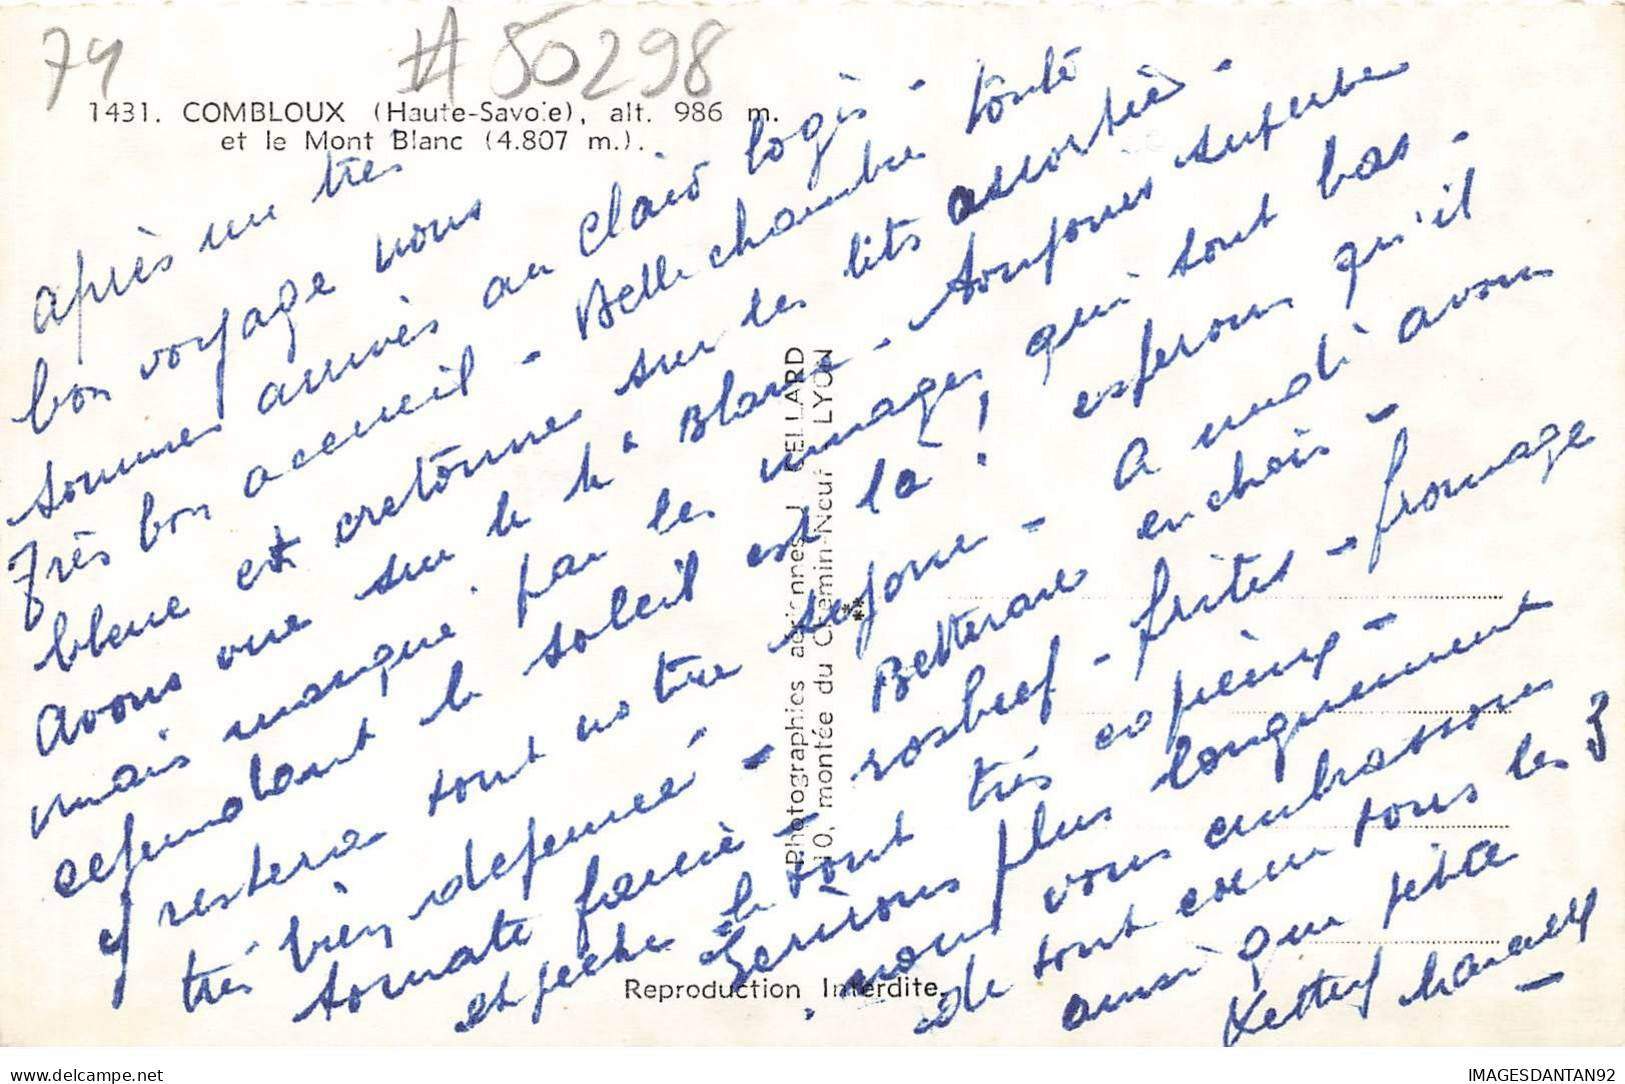 74
# 50298
1431. COMBLOUX (Haute-Savoie), alt. 986 m.
et le Mont Blanc (4.807 m.).
après un très
bon voyage nous
sommes arrivés au clair logis -
Très bon accueil - Belle chambre toute
bleue et cretonne sur les lits assortie -
Avons vue sur le Mt Blanc - toujours superbe
mais manqué par les nuages qui sont bas -
cependant le soleil est là ! esperons qu'il
y restera tout notre séjour - A midi avons
très bien dejeuné - Betterave en chois -
tomate farcie - rosbeef - frites - fromage
et peche le tout très copieux -
Ecrirons plus longuement
nous vous embrassons
de tout coeur tous les 3
ainsi que petite
Photographies aériennes J. CELLARD
10, montée du Chemin-Neuf LYON
Reproduction Interdite.
IMAGESDANTAN92
delcampe.net